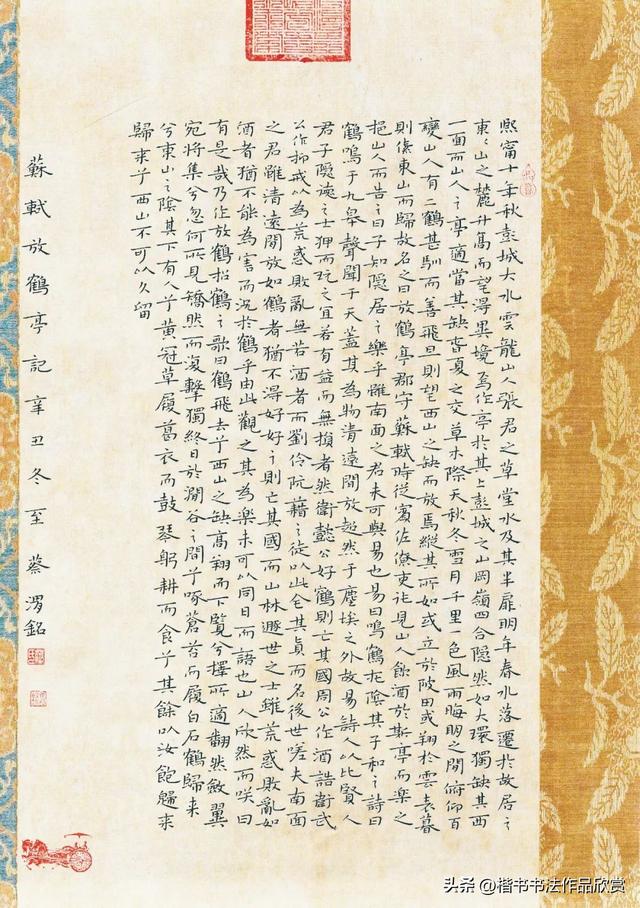 熙甯十年秋彭城大水雲龍山人張君之草堂水及其半扉明年春水落遷於故居之
東〻山之麓升高而望得異境焉作亭於其上彭城之山岡嶺四合隱然如大環獨缺其西
一面而山人之亭適當其缺春夏之交草木際天秋冬雪月千里一色風雨晦明之間俯仰百
變山人有二鶴甚馴而善飛旦則望西山之缺而放焉縱其所如或立於陂田或翔於雲表暮
則傃東山而歸故名之曰放鶴亭郡守蘇軾時從賓佐僚吏往見山人飲酒於斯亭而樂之
挹山人而告之曰子知隱居之樂乎雖南面之君未可與易也易曰鳴鶴在陰其子和之詩曰
鶴鳴于九皋聲聞于天蓋其為物清遠閒放超然于塵埃之外故易詩人以比賢人
君子隱德之士狎而玩之宜若有益而無損者然衛懿公好鶴則亡其國周公作酒誥衛武
公作抑戒以為荒惑敗亂無若酒者而劉伶阮藉之徒以此全其真而名後世嗟夫南面
之君雖清遠閒放如鶴者猶不得好好之則亡其國而山林遯世之士雖荒惑敗亂如
酒者猶不能為害而況於鶴乎由此觀之其為樂未可以同日而語也山人欣然而咲曰
有是哉乃作放鶴招鶴之歌曰鶴飛去兮西山之缺高翔而下覽兮擇所適翻然斂翼
宛將集兮忽何所見矯然而復擊獨終日於澗谷之間兮啄蒼苔而履白石鶴歸來
兮東山之陰其下有人兮黃冠草履葛衣而鼓琴躬耕而食兮其餘以汝飽歸來
歸來兮西山不可以久留
蘇軾放鶴亭記辛丑冬至蔡渭銘
头条 @楷书书法作品欣赏